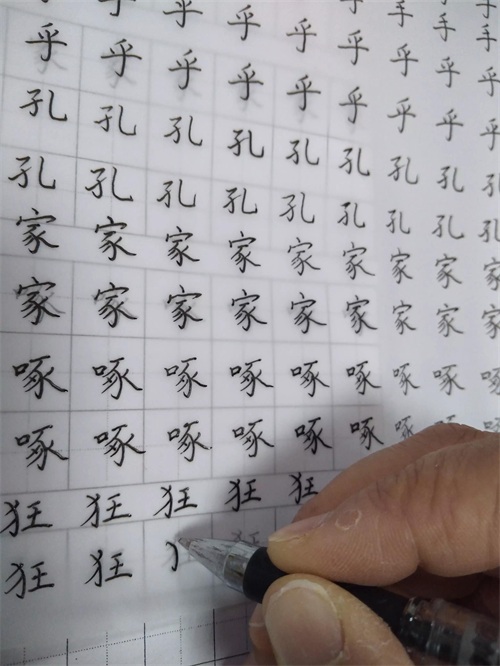 手 手 手
乎 乎 乎 乎 乎 乎
乎 乎 乎 乎 乎 乎 乎 乎 乎
孔 孔 孔 孔 孔 孔 孔 孔
孔 孔 孔 孔 孔 孔 孔 孔
家 家 家 家 家 家 家 家 家
家 家 家 家 家 家 家 家 家
啄 啄 啄 啄 啄 啄 啄 啄
啄 啄 啄 啄 啄 啄 啄
狂 狂 狂 狂 狂
狂 狂